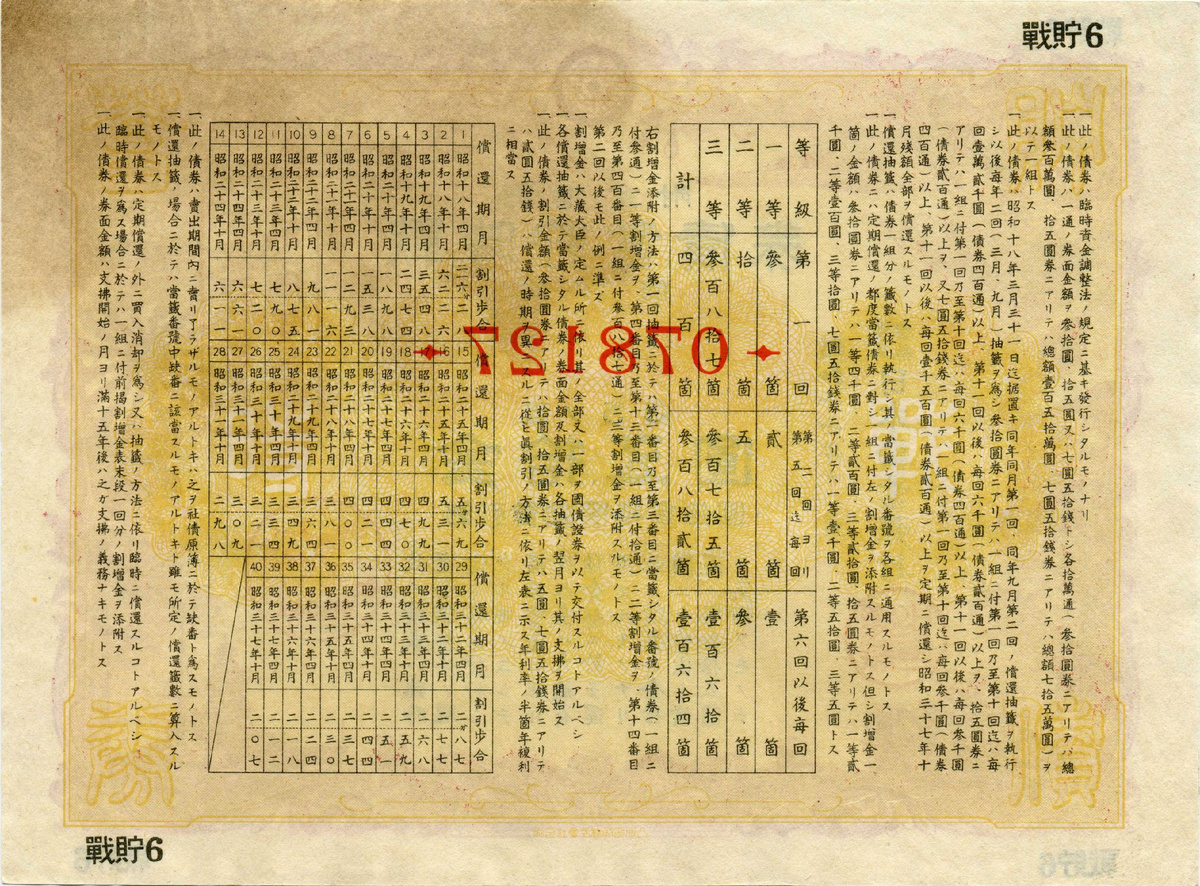 戰貯6
一此ノ債券ハ臨時資金調整法ノ規定ニ基キ發行シタルモノナリ
一此ノ債券ハ一通ノ券面金額ヲ參拾圓、拾五圓又ハ七圓五拾錢トシ各拾萬通(參拾圓券ニアリテハ總
額參百萬圓、拾五圓券ニアリテハ總額壹百五拾萬圓、七圓五拾錢券ニアリテハ總額七拾五萬圓)ヲ
以テ一組トス
一此ノ債券ハ昭和十八年三月三十一日迄据置キ同年同月第一回、同年九月第二回ノ償還抽籤ヲ執行
シ以後每年二回(三月、九月)抽籤ヲ爲シ參拾圓券ニアリテハ一組ニ付第一回乃至第十回迄ハ每
回壹萬貳千圓(債券四百通)以上、第十一回以後ハ每回六千圓(債券貳百通)以上ヲ、拾五圓券ニ
アリテハ一組ニ付第一回乃至第十回迄ハ每回六千圓(債券四百通)以上、第十一回以後ハ每回參千圓
(債券貳百通)以上ヲ、又七圓五拾錢券ニアリテハ一組ニ付第一回乃至第十回迄ハ每回參千圓(債券
四百通)以上、第十一回以後ハ每回壹千五百圓(債券貳百通)以上ヲ定期ニ償還シ昭和三十七年十
月殘額全部ヲ償還スルモノトス
一償還抽籤ハ債券一組分ノ籤數ニ依リ執行シ其ノ當籤シタル番號ヲ各組ニ通用スルモノトス
一此ノ債券ニハ定期償還ノ都度當籤債券ニ對シ一組ニ付左ノ割增金ヲ添附スルモノトス但シ割增金一
箇ノ金額ハ參拾圓券ニアリテハ一等四千圓、二等貳百圓、三等貳拾圓、拾五圓券ニアリテハ一等貳
千圓、二等壹百圓、三等拾圓、七圓五拾錢券ニアリテハ一等壹千圓、二等五拾圓、三等五圓トス
等級 第一回 第二回ヨリ第五回迄每回 第六回以後每回
一等 參箇 貳箇 壹箇
二等 拾箇 五箇 參箇
三等 參百八拾七箇 參百七拾五箇 壹百六拾箇
計 四百箇 參百八拾貳箇 壹百六拾四箇
右割增金添附ノ方法ハ第一回抽籤ニ於テハ第一番目乃至第三番目ニ當籤シタル番號ノ債券(一組ニ
付參通)ニ一等割增金ヲ、第四番目乃至第十三番目(一組ニ付拾通)ニ二等割增金ヲ、第十四番目
乃至第四百番目(一組ニ付參百八拾七通)ニ三等割增金ヲ添附スルモノトス
第二回以後モ此ノ例ニ準ズ
一割增金ハ大藏大臣ノ定ムル所ニ依リ其ノ全部又ハ一部ヲ國債證券ヲ以テ交付スルコトアルベシ
一各償還抽籤ニ於テ當籤シタル債券ノ券面金額及割增金ハ各抽籤ノ翌月ヨリ其ノ支拂ヲ開始ス
一此ノ債券ノ割引金額(參拾圓券ニアリテハ拾圓、拾五圓券ニアリテハ五圓、七圓五拾錢券ニアリテ
ハ貳圓五拾錢)ハ償還ノ時期ヲ異ニスルニ從ヒ眞割引ノ方法ニ依リ左表ニ示ス年利率ノ半箇年複利
ニ相當ス
078127
償還期月 割引步合 償還期月 割引步合 償還期月 割引步合
1 昭和十八年四月
15 昭和二十五年四月 五六九
29 昭和三十二年四月 二八七
2 昭和十八年十月
16 昭和二十五年十月 五三一
30 昭和三十二年十月 二七七
3 昭和十九年四月
17 昭和二十六年四月 四九九
31 昭和三十三年四月 二六八
4 昭和十九年十月
18 昭和二十六年十月 四七〇
32 昭和三十三年十月 二五九
5 昭和二十年四月
19 昭和二十七年四月
33 昭和三十四年四月 二五一
6 昭和二十年十月 一五三八
20 昭和二十七年十月 四二一
34 昭和三十四年十月 二四四
7 昭和二十一年四月 一二九三
21 昭和二十八年四月 四〇〇
35 昭和三十五年四月 二三七
8 昭和二十一年十月 一一一六
22 昭和二十八年十月 三八一
36 昭和三十五年十月 二三〇
9 昭和二十二年四月 九八一
23 昭和二十九年四月 三六四
37 昭和三十六年四月 二二四
10 昭和二十二年十月 八七五
24 昭和二十九年十月 三四九
38 昭和三十六年十月 二一八
11 昭和二十三年四月 七九〇
25 昭和三十年四月 三三四
39 昭和三十七年四月 二一二
12 昭和二十三年十月 七二〇
26 昭和三十年十月 三二一
40 昭和三十七年十月 二〇七
13 昭和二十四年四月 六六一
27 昭和三十一年四月 三〇九
14 昭和二十四年十月 六一一
28 昭和三十一年十月 二九八
一此ノ債券ハ賣出期間內ニ賣リ了ラザルモノアルトキハ之ヲ社債原簿ニ於テ缺番ト爲スモノトス
一償還抽籤ノ場合ニ於テハ當籤番號中缺番ニ該當スルモノアルトキト雖モ所定ノ償還籤數ニ算入スル
モノトス
一此ノ債券ハ定期償還ノ外ニ買入消却ヲ爲シ又ハ抽籤ノ方法ニ依リ臨時ニ償還スルコトアルベシ
臨時償還ヲ爲ス場合ニ於テハ一組ニ付前揭割增金表末段一回分ノ割增金ヲ添附ス
一此ノ債券ノ券面金額ハ支拂開始ノ月ヨリ滿十五年後ハ之ガ支拂ノ義務ナキモノトス
戰貯6